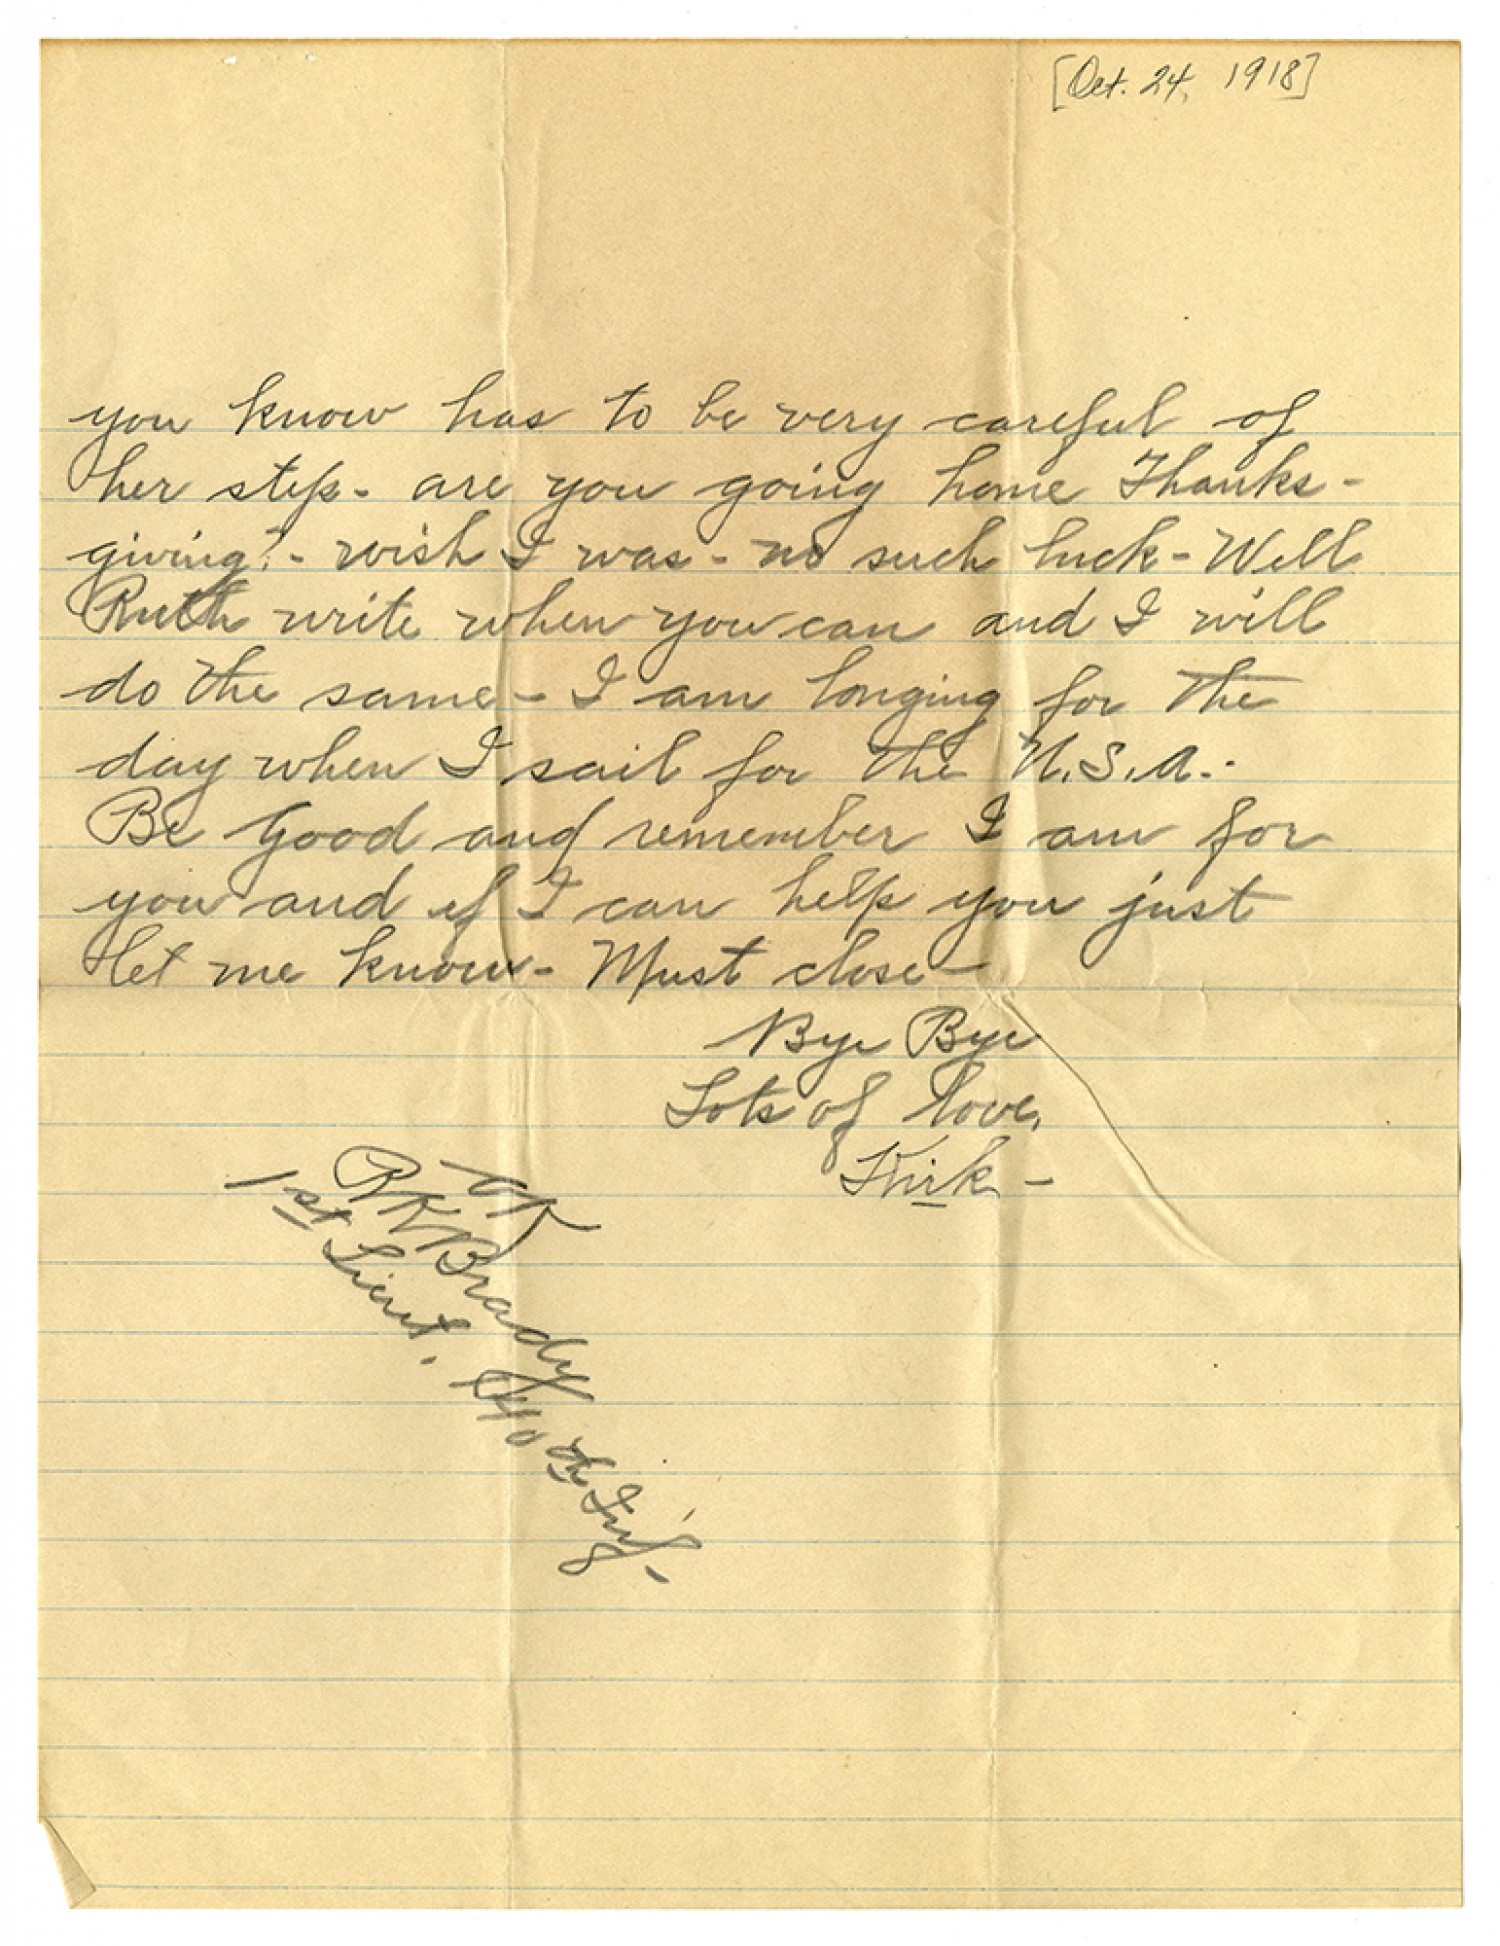 [Oct. 24, 1918]
you know has to be very careful of
her step - are you going home Thanks-
giving? - wish I was - no such luck - Well
Ruth write when you can and I will
do the same - I am longing for the
day when I sail for the U.S.A. -
Be Good and remember I am for
you and if I can help you just
let me know - Must close -
Bye Bye
Lots of love,
Kirk -
OK
RKBrady
1st Lieut. 140th Inf.